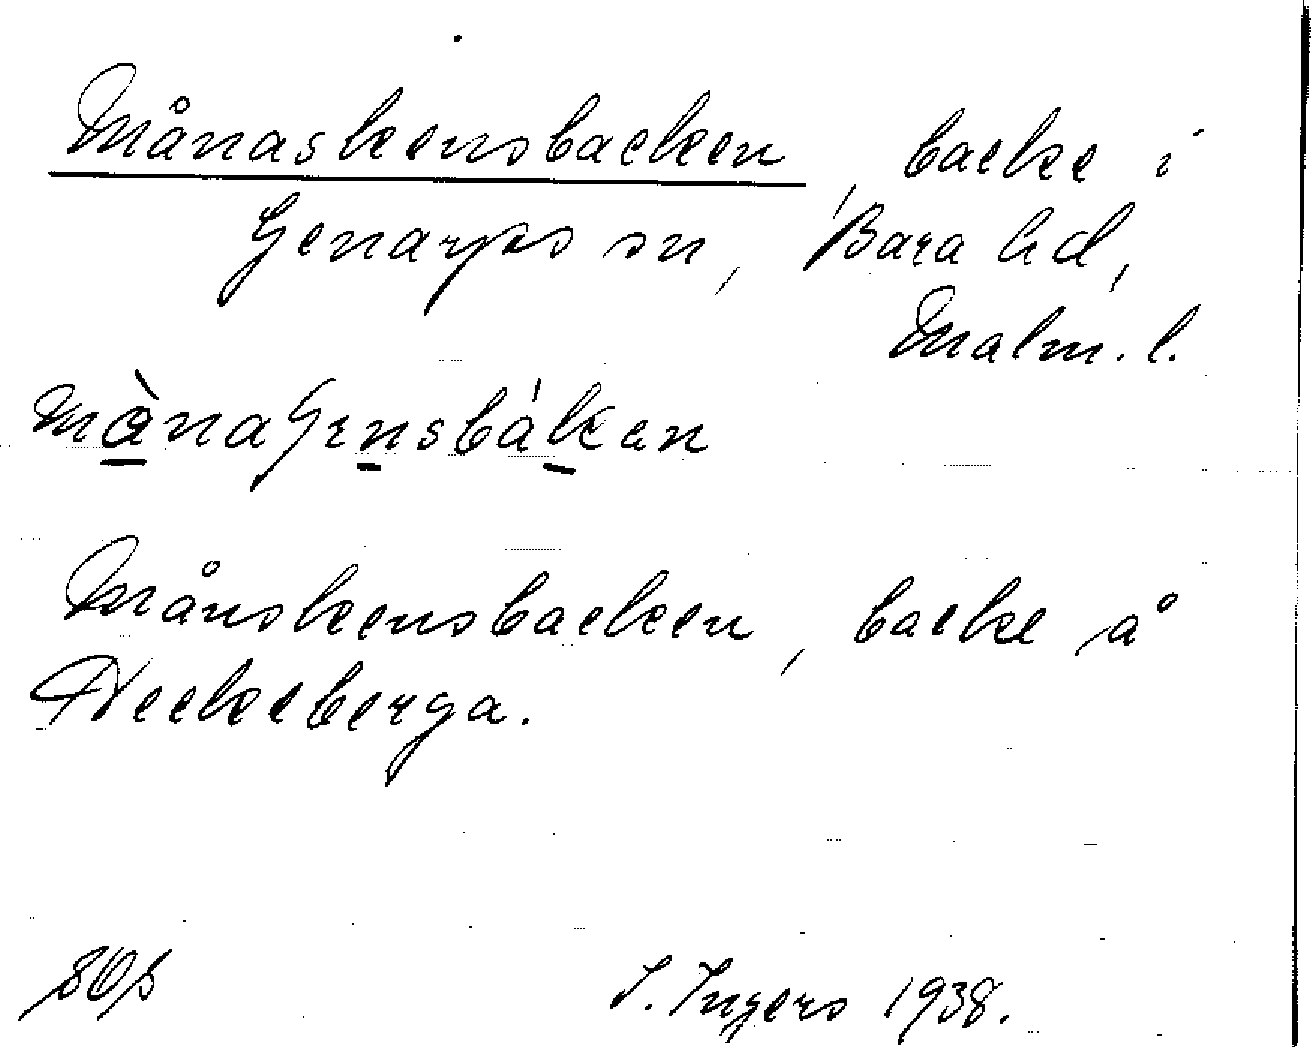 Månaskensbacken, backe i
Genarps sn, Bara hd,
Malm. l.
Månskensbacken, backe å
Heckeberga.
I. Ingers 1938.